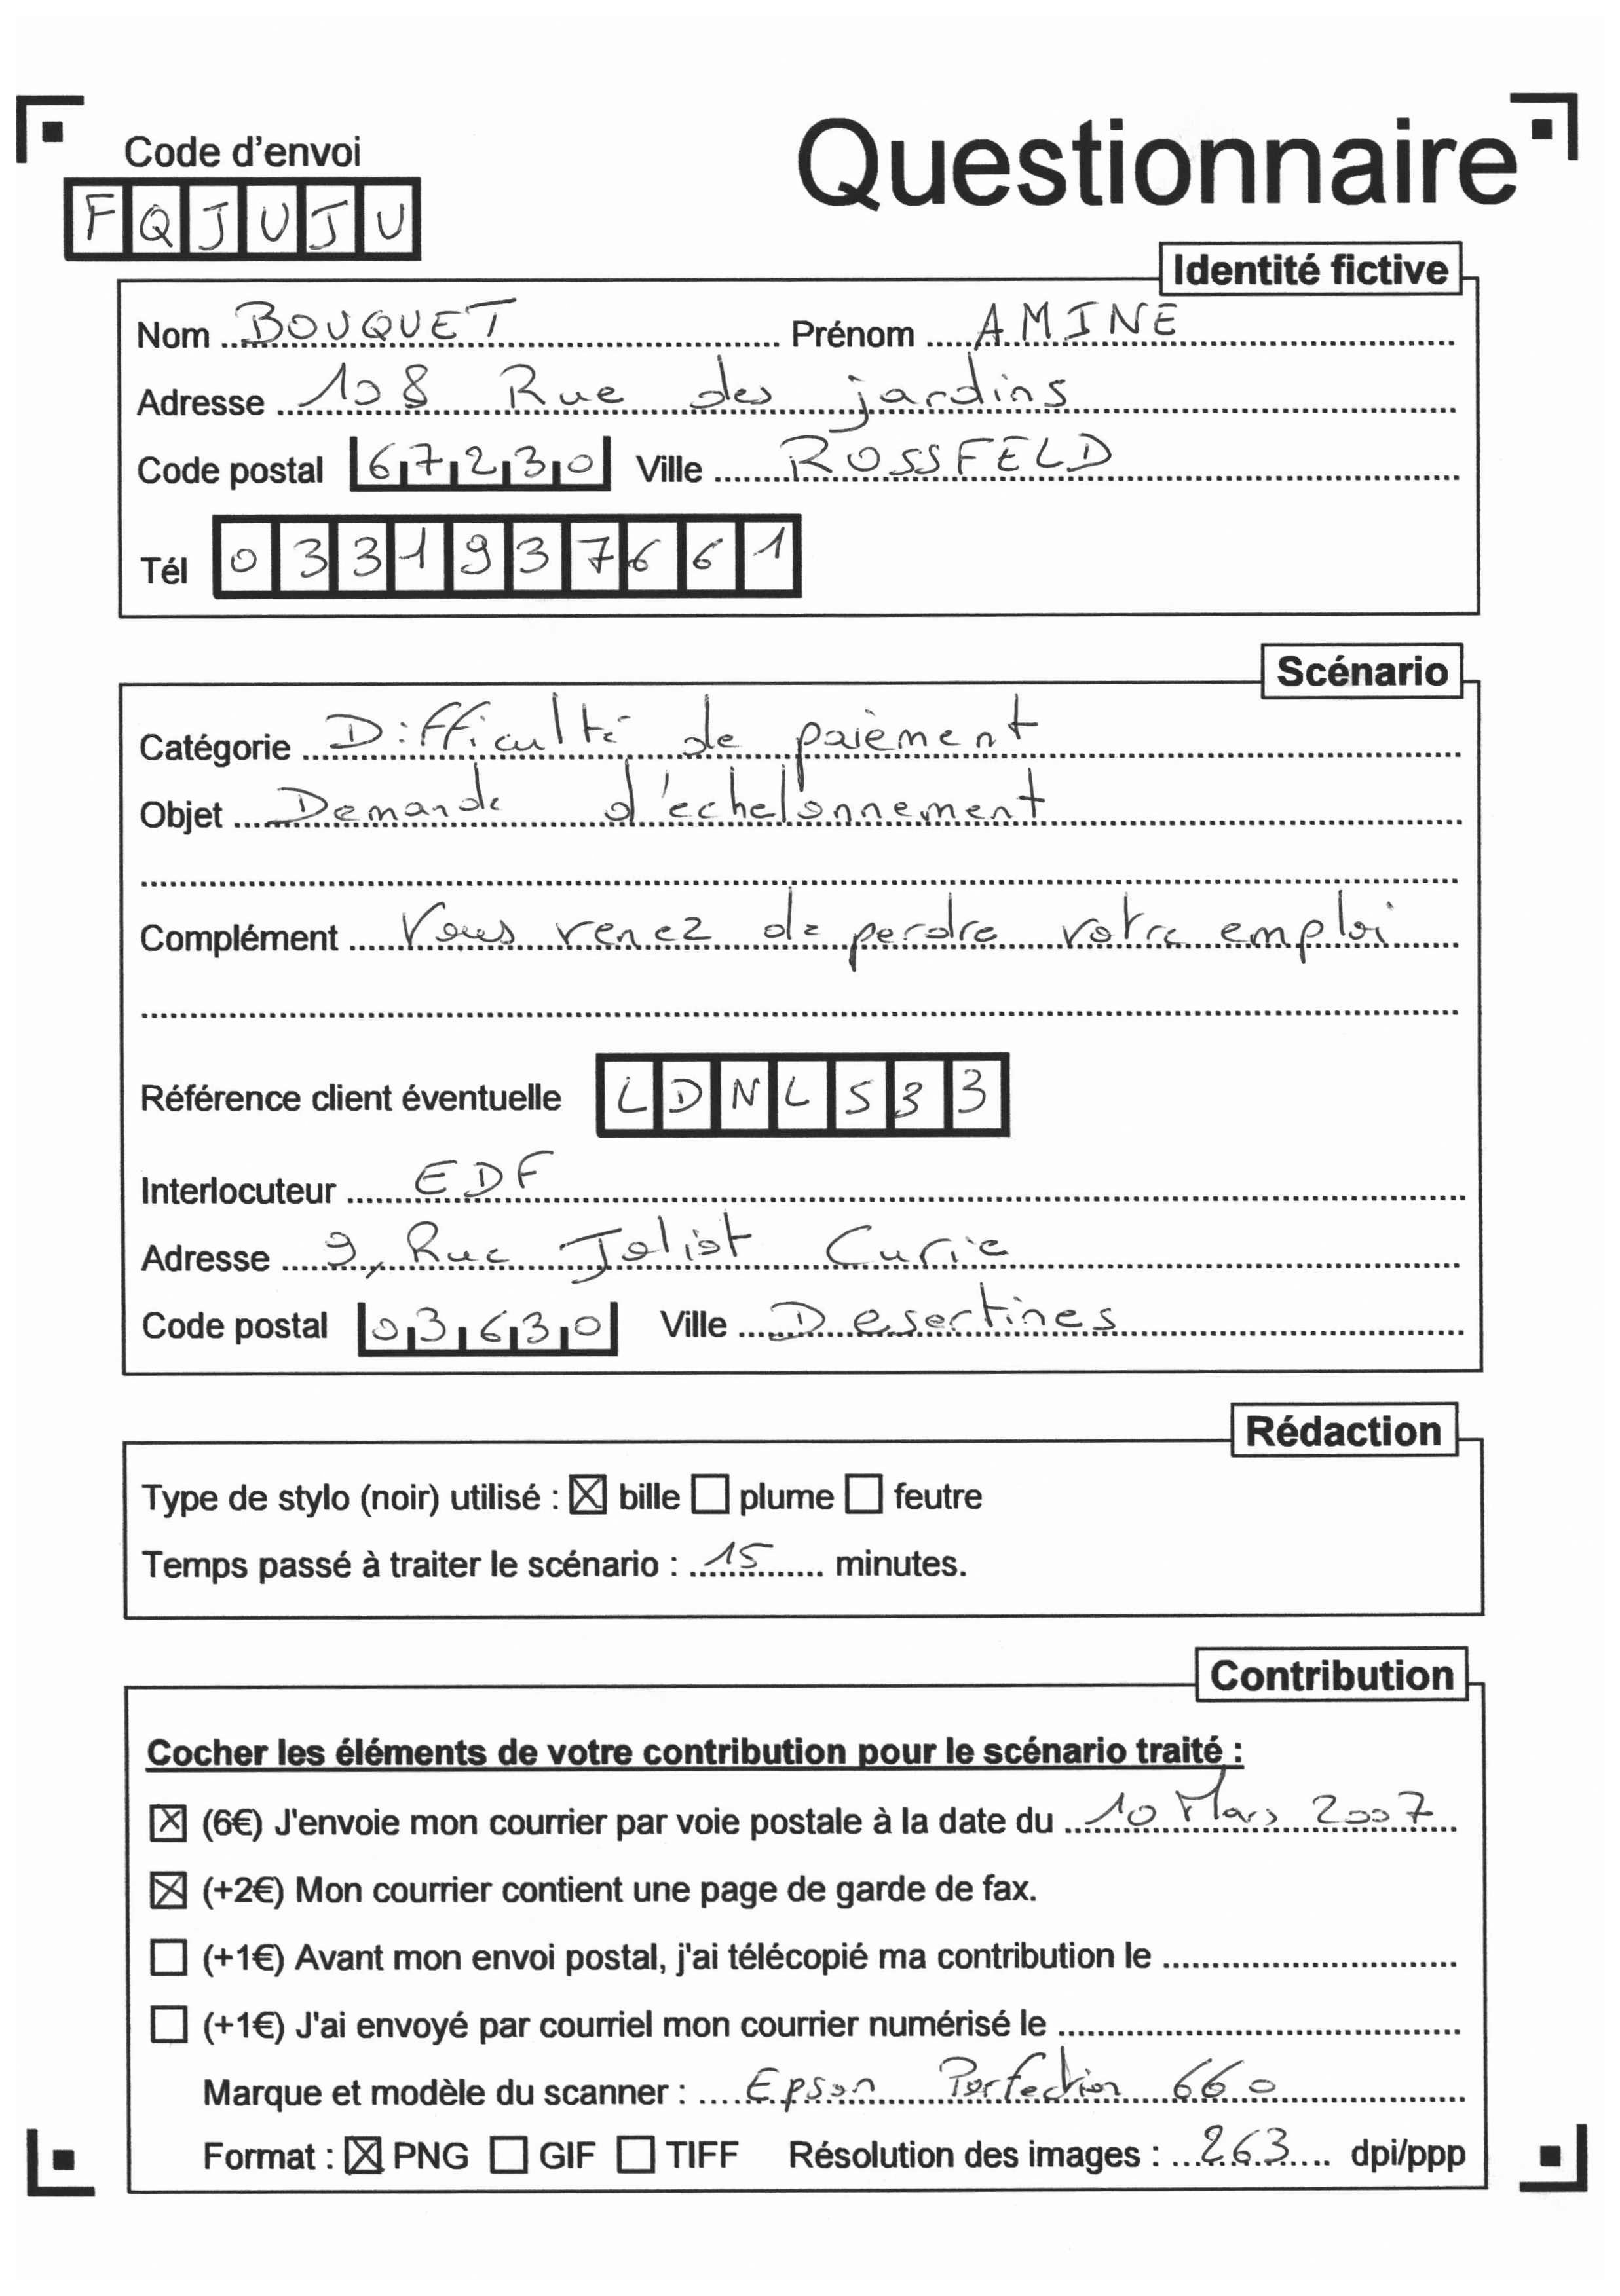 Code d'envoi
Questionnaire
FQJUJU
Identité fictive
Nom BOUQUET Prénom AMINE
Adresse 108 Rue des jardins
Code postal 67230 Ville ROSSFELD
Tél 0331937661
Scénario
Catégorie Difficulté de paièment
Objet Demande d'echelonnement
Complément Vous venez de perdre votre emploi
Référence client éventuelle LDNLS33
Interlocuteur EDF
Adresse 9, Rue Joliot Curie
Code postal 03630 Ville Desertines
Rédaction
Type de stylo (noir) utilisé : ☒ bille ☐ plume ☐ feutre
Temps passé à traiter le scénario : 15 minutes.
Contribution
Cocher les éléments de votre contribution pour le scénario traité :
☒ (6€) J'envoie mon courrier par voie postale à la date du 10 Mars 2007
☒ (+2€) Mon courrier contient une page de garde de fax.
☐ (+1€) Avant mon envoi postal, j'ai télécopié ma contribution le
☐ (+1€) J'ai envoyé par courriel mon courrier numérisé le
Marque et modèle du scanner : Epson Perfection 660
Format : ☒ PNG ☐ GIF ☐ TIFF Résolution des images : 263 dpi/ppp